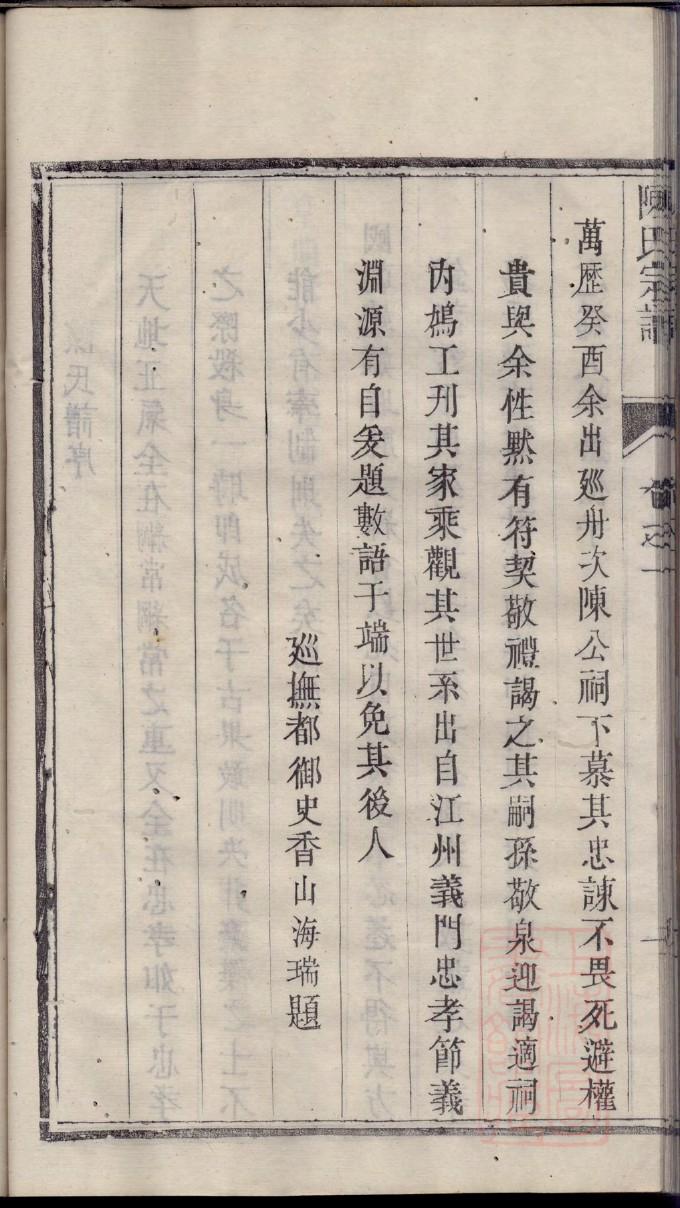 陳氏宗譜
卷之一
萬歷癸酉余出廵舟次陳公祠下慕其忠諫不畏死避權
貴與余性默有符契敬禮謁之其嗣孫敬泉迎謁適祠
內鳩工刋其家乘觀其世系出自江州義門忠孝節義
淵源有自爰題數語于端以免其後人
廵撫都御史香山海瑞題